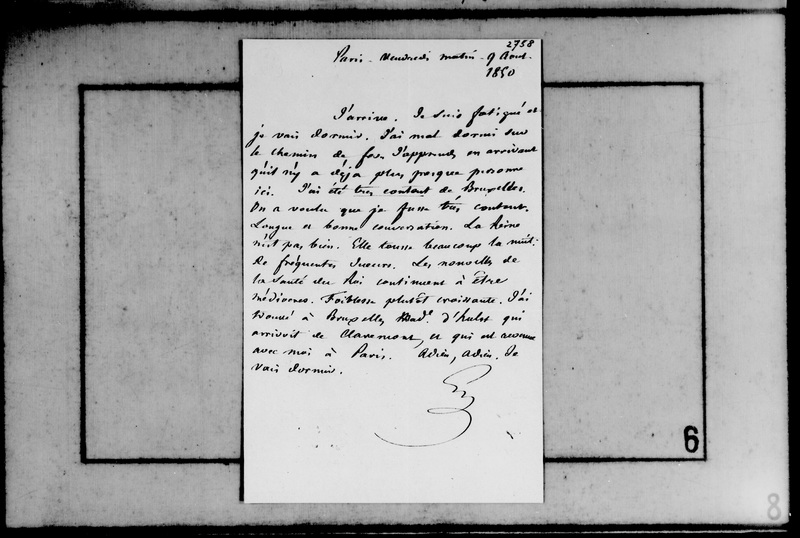 2758
Paris - Vendredi matin - 9 Août.
1850
J'arrive. Je suis fatigué et
je vais dormir. J'ai mal dormi sur
le chemin de fer. J'apprends en arrivant
qu'il n'y a déjà plus presque personne
ici. J'ai été très content de Bruxelles.
On a voulu que je fusse très content.
Longue et bonne conversation. La Reine
n'est pas bien. Elle tousse beaucoup la nuit.
De fréquentes sueurs. Les nouvelles de
la santé du Roi continuent à être
médiocres. Faiblesse plutôt croissante. J'ai
trouvé à Bruxelles Mad.e d'Hulst qui
arrivoit de Claremont, et qui est revenue
avec moi à Paris. Adieu, adieu. Je
vais dormir.
6
8